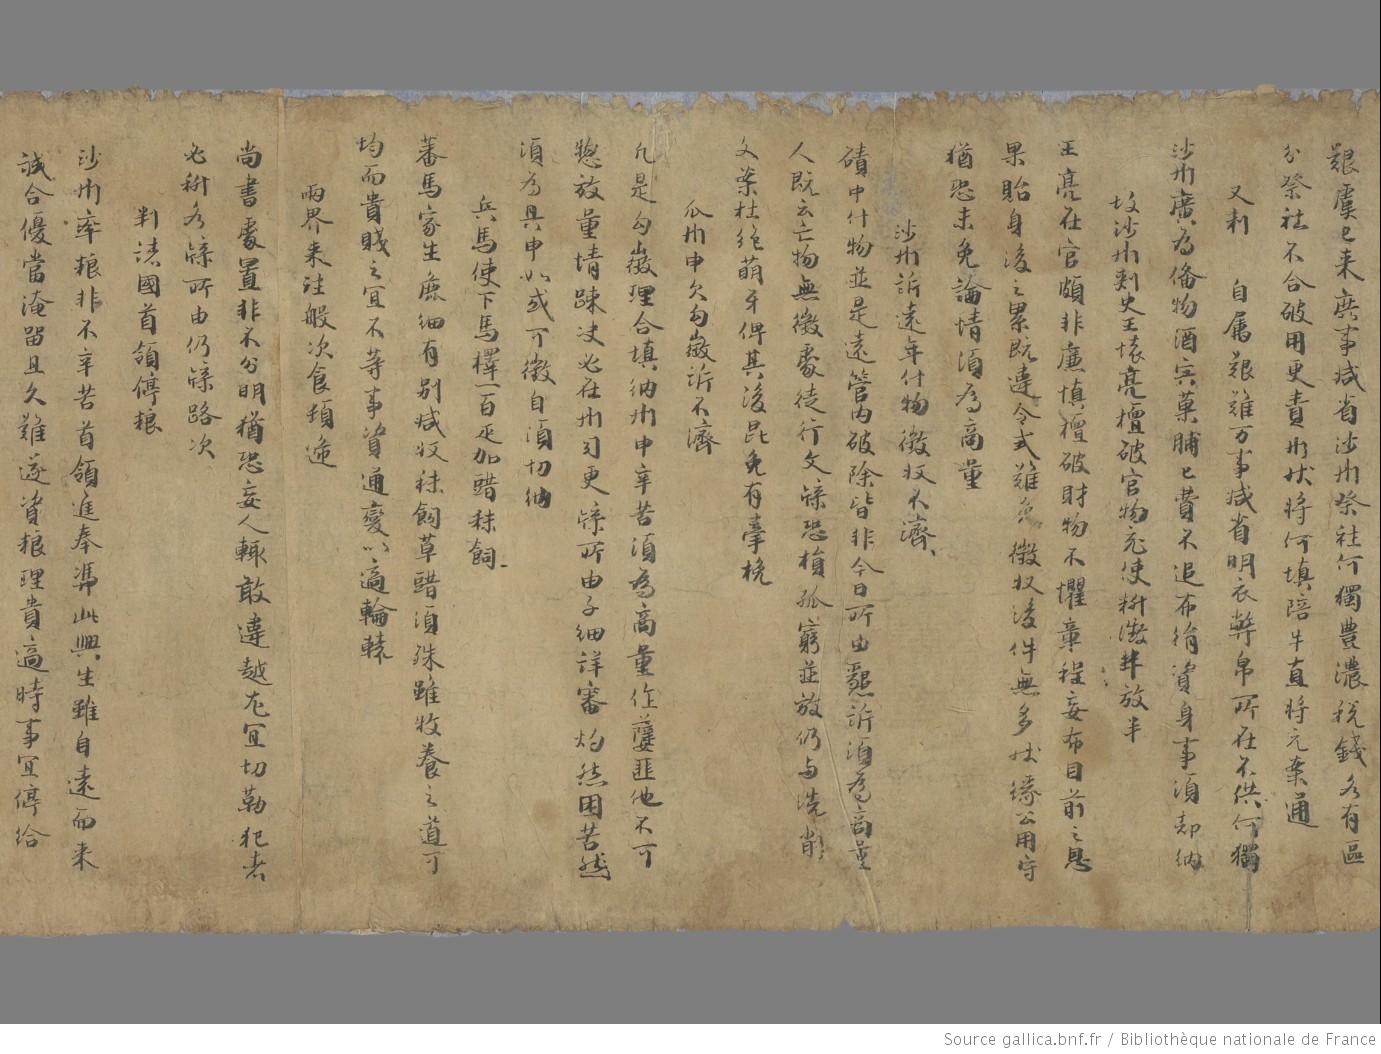 艱虞已来庶事减省沙州祭社何獨豊濃税錢各有區
分祭社不合破用更責州状将何填陪牛直将元案通
又判　自属艱難万事减省明衣幣帛所在不供何獨
沙州廣為備物酒宍菓脯已費不追布絹資身事須却納
故沙州刾史王懐亮擅破官物充使料徴半放半
王亮在官頗非廉慎擅破財物不懼章程妄布目前之恩
果貽身後之累既違令式難免徴收後件無多状縁公用守
猶恐未免論情須為商量
沙州訴遠年什物徴收不濟
磧中什物並是遠管内破除皆非今日所由懇訴須為商量
人既云亡物無徴處徒行文牒恐損孤窮並放仍与洗削
文案杜絶萌牙俾其後昆免有牽挽
瓜州申欠勾徴訴不濟
凡是勾徴理合填納州申辛苦須為商量作薆匪他不可
惣放量情踈决必在州司更牒所由子細詳審灼然困苦然
須為具申如或可徴自須切納
兵馬使下馬擇一百疋加䜺秣飼
蕃馬家生麁細有别减收秣飼草䜺須殊雖牧養之道可
均而貴賎之宜不等事資通變以適輪轅
兩界来往般次食頓遞
尚書處置非不分明猶恐妄人輙敢違越尤宜切勒犯者
必科各牒所由仍牒路次
判諸國首領停粮
沙州率粮非不辛苦首領進奉憑此興生雖自遠而来
誠合優當淹留且久難遂資粮理貴適時事宜停給
Source gallica.bnf.fr / Bibliothèque nationale de France